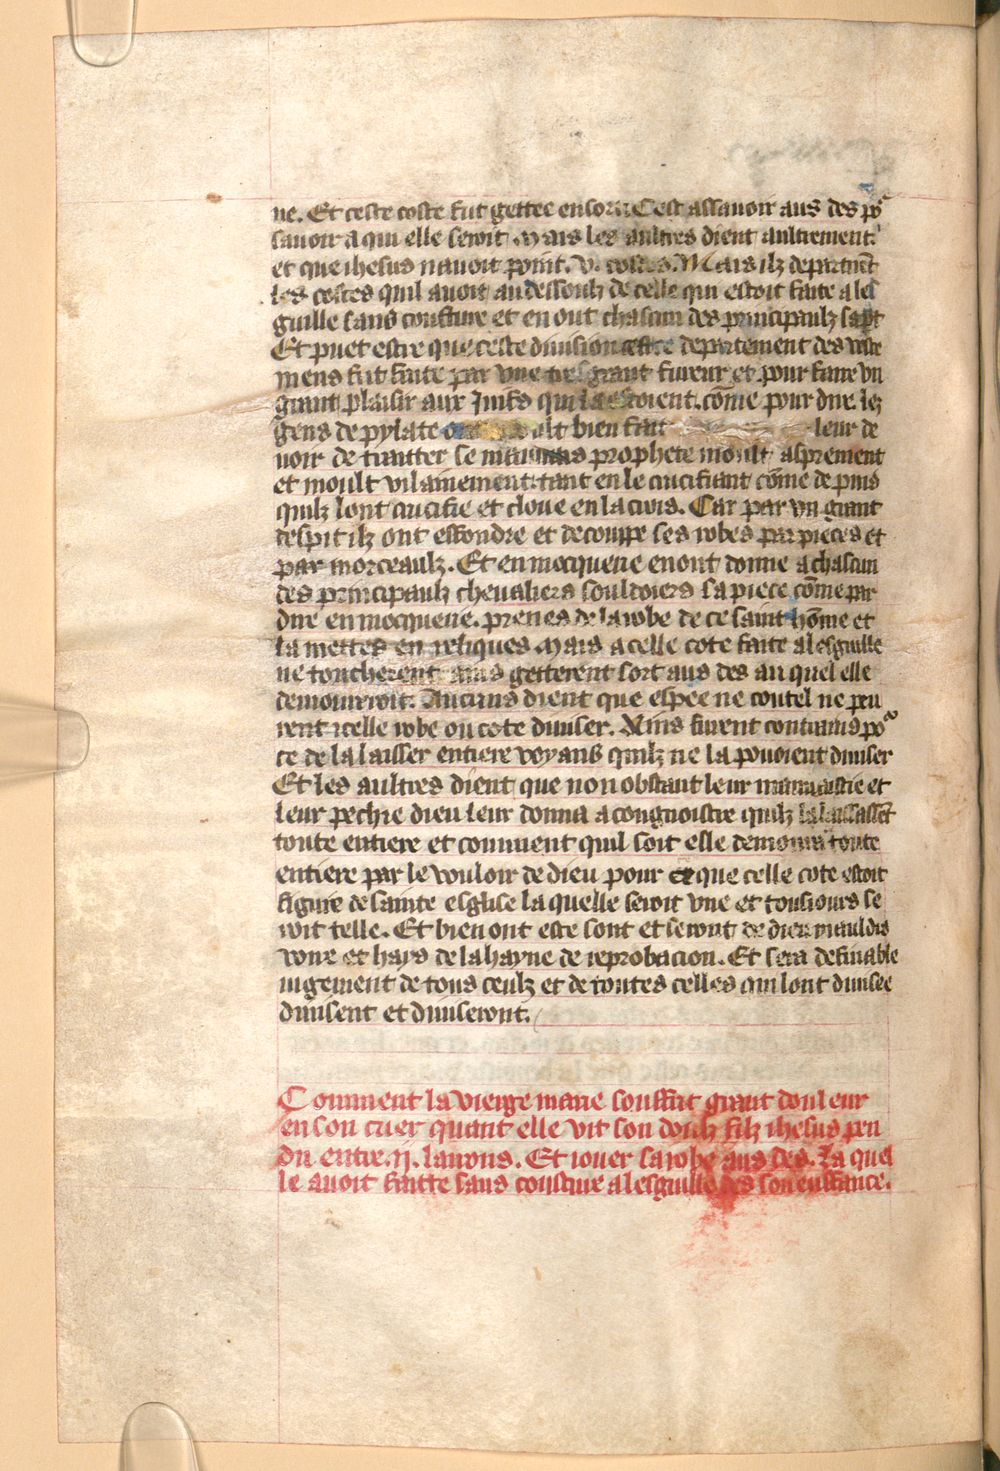 ne. Et ceste coste fut gettee en sort Cest assauoir aus des po᷑
sauoir a qui elle seroit. Mais les aultres dient aultrement.
et que ihesus nauoit point. v. costes. Mais ilz departirẽt
les costes quil auoit au dessoulz de celle qui estoit faite a les
guille sans cousture et en out chascun des principaulz sa pt
Et puet estre que ceste diuision cestre departement des veste
mens fut faite par vne tresgrant fureur et pour faire vn
grant plaisir aux Juifs qui la estoient. cõme pour dire. lez
gens de pylate ont moult bien fait leur de
uoir de traitter se mauuais prophete moult asprement
et moult vilainement: tant en le crucifiant cõme de puis
quilz lont crucifie et cloue en la crois. Car par vn grant
despit ilz ont effondre et decouppe ses robes par pieces et
par morceaulz. Et en mocquerie en ont donne a chascun
des principaulz cheualiers souldoiers sa piece cõme par
dire en mocquerie. prenes de la robe de ce saint hõme et
la mettes en reliques. Mais a celle cote faite a lesguille
ne toucherent mais getterent sort aus des au quel elle
demourroit. Aucuns dient que espee ne coutel ne peu
rent icelle robe ou cote diuiser. Ains furent contrains po᷑
ce de la laisser entiere voyans quilz ne la pouoient diuiser
Et les aultres dient que non obstant leur mauuaistie et
leur pechie dieu leur donna a congnoistre quilz la laissassẽt
toute entiere et comment quil soit elle demoura toute
entiere par le vouloir de dieu pour ce que celle cote estoit
figure de sainte esglise la quelle seroit vne et tousiours se
roit telle. Et bien ont este sont et seront de dieu mauldis
voire et hays de la hayne de reprobacion. Et sera definable
iugement de tous ceulz et de toutes celles qui lont diuisee
diuisent et diuiseront.
Comment la vierge marie souffrit grant douleur
en son cuer quant elle vit son doulz filz ihesus pen
du entre .ij. larrons. Et iouer sa robe aus des. La quel
le auoit faitte sans cousture a lesguille des son enffance.